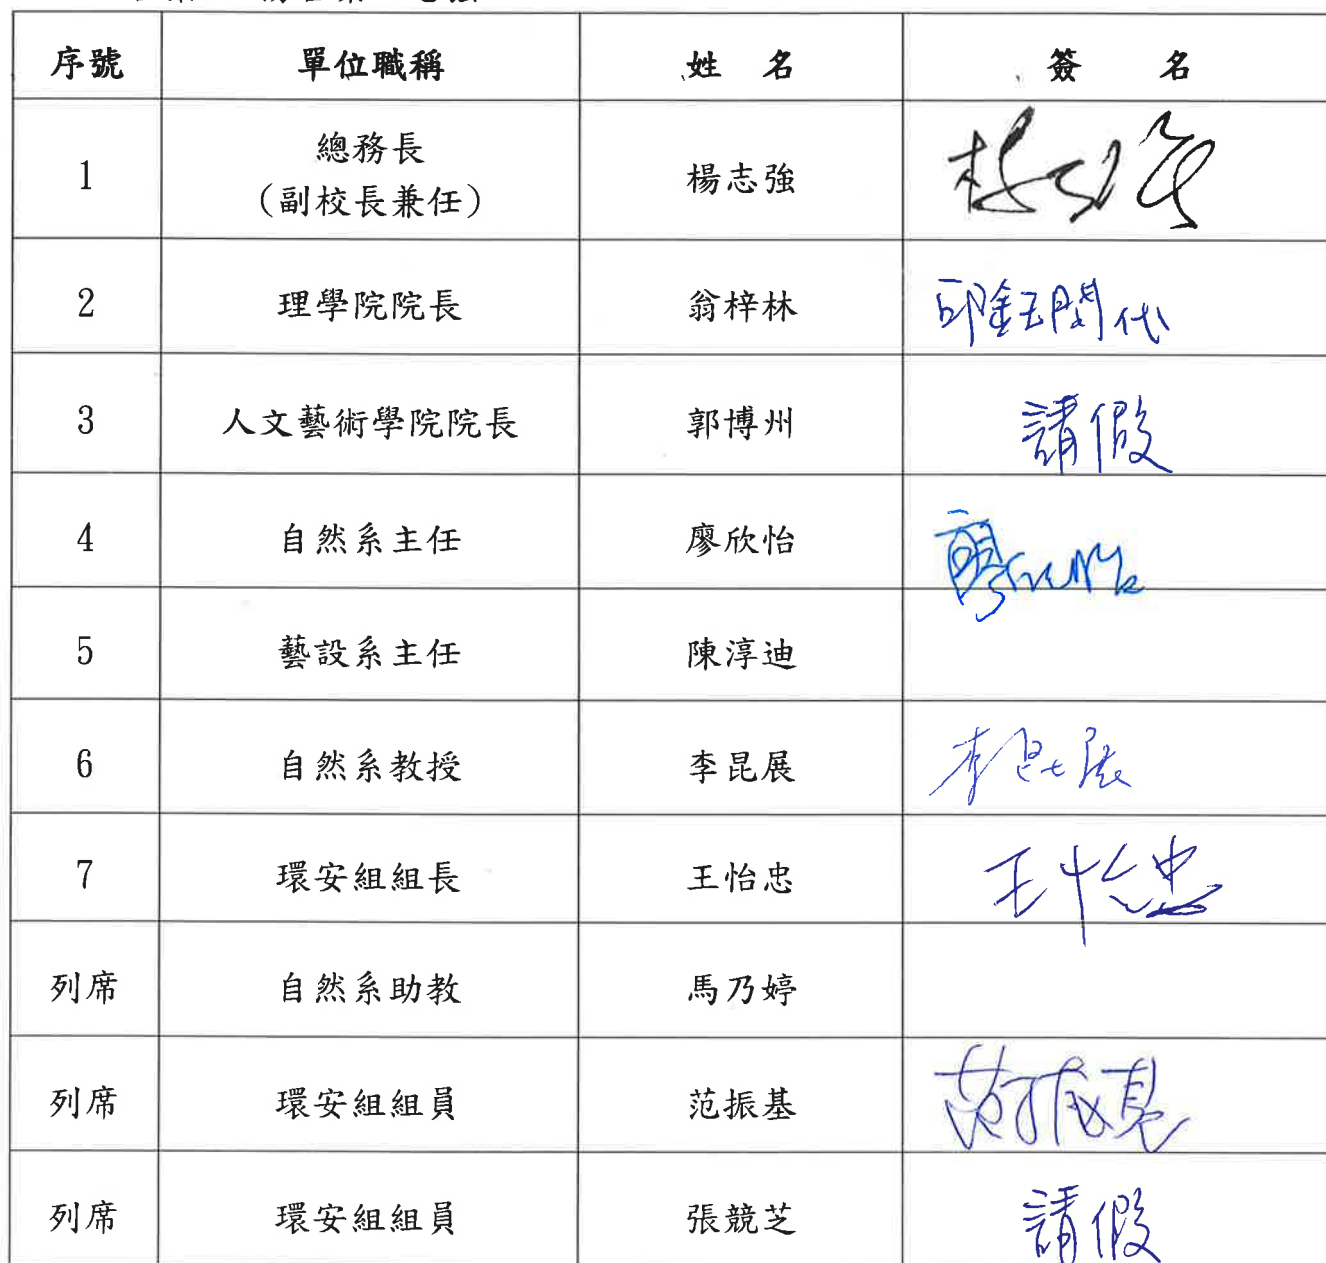 序號 單位職稱 姓 名 簽 名
1 總務長 (副校長兼任) 楊志強 楊志強
2 理學院院長 翁梓林 邱鈺閔代
3 人文藝術學院院長 郭博州 請假
4 自然系主任 廖欣怡 廖欣怡
5 藝設系主任 陳淳迪
6 自然系教授 李昆展 李昆展
7 環安組組長 王怡忠 王怡忠
列席 自然系助教 馬乃婷
列席 環安組組員 范振基 范振基
列席 環安組組員 張競芝 請假